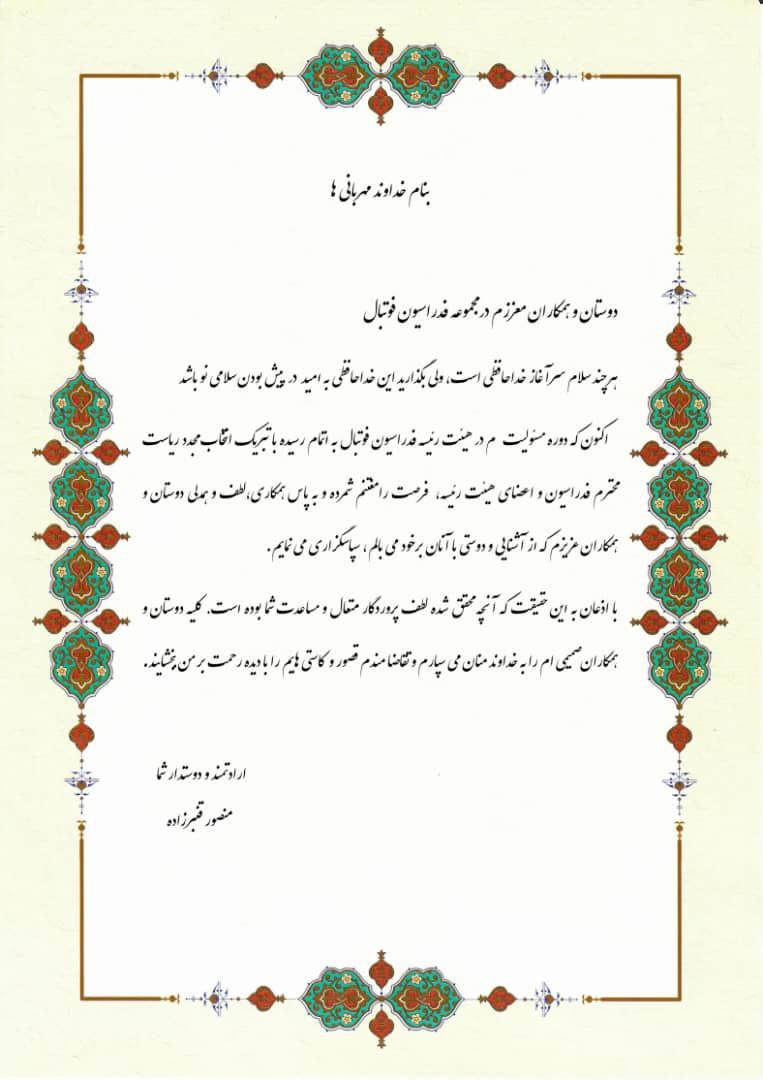 بنام خداوند مهربانی ها
دوستان و همکاران معززم در مجموعه فدراسیون فوتبال
هر چند سلام سرآغاز خداحافظی است، ولی بگذارید این خداحافظی به امید در پیش بودن سلامی نو باشد
اکنون که دوره مسئولیت م در هیئت رئیسه فدراسیون فوتبال به اتمام رسیده با تبریک انتخاب مجدد ریاست
محترم فدراسیون و اعضای هیئت رئیسه، فرصت را مغتنم شمرده و به پاس همکاری،لطف و همدلی دوستان و
همکاران عزیزم که از آشنایی و دوستی با آنان برخود می بالم ، سپاسگزاری می نمایم.
با اذعان به این حقیقت که آنچه محقق شده لطف پروردگار متعال و مساعدت شما بوده است. کلیه دوستان و
همکاران صمیمی ام را به خداوند منان می سپارم و تقاضامندم قصور و کاستی هایم را با دیده رحمت بر من ببخشایند.
ارادتمند و دوستدار شما
منصور قنبرزاده